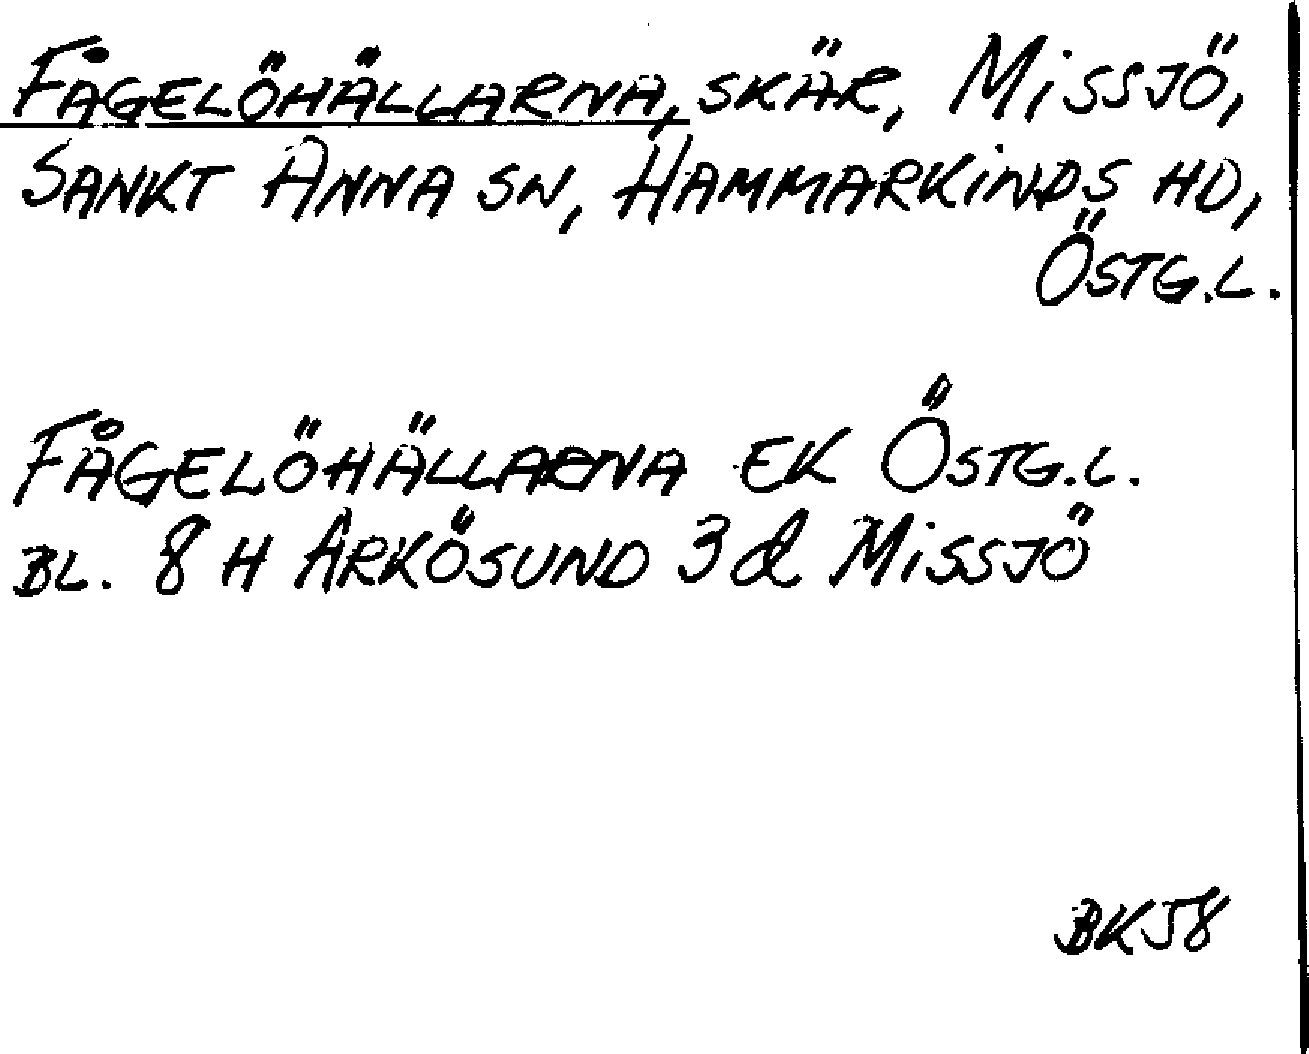 FÅGELÖHÄLLARNA, SKÄR, MISSJÖ,
SANKT ANNA SN, HAMMARKINDS HD,
ÖSTG.L.
FÅGELÖHÄLLARNA EK ÖSTG.L.
BL. 8 H ARKÖSUND 3 d MISSJÖ
BK58